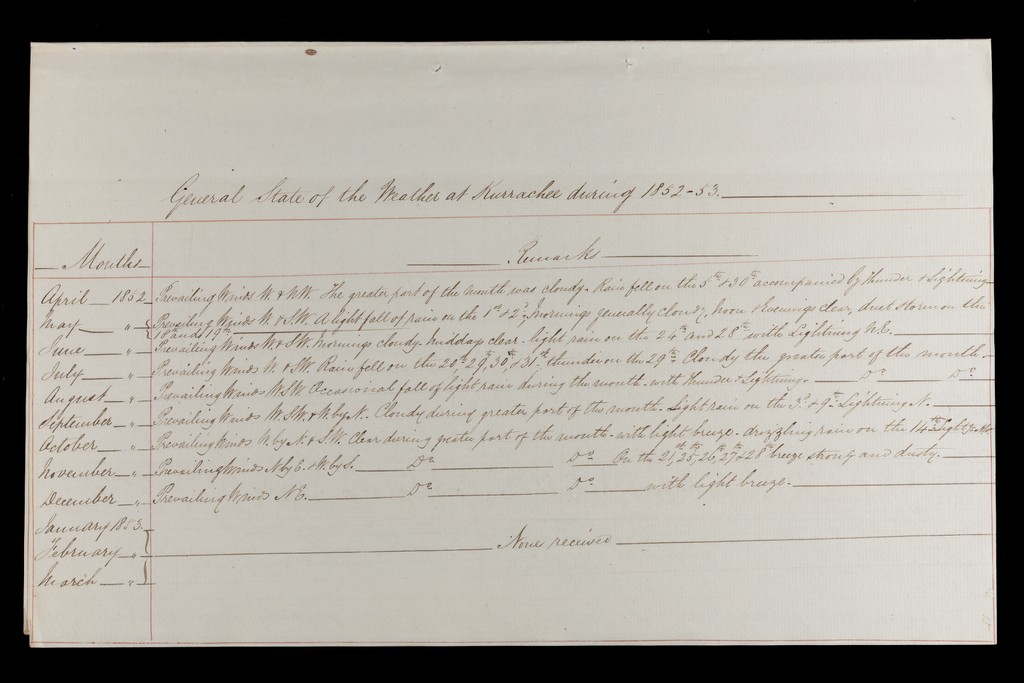 General State of the Weather at Kurrachee during 1852-53.
Months Remarks
April 1852 Prevailing Winds W. & NW. The greater part of the month was cloudy. Rain fell on the 5th & 30th accompanied by thunder & Lightning
May " Prevailing Winds W. & S.W. A light fall of rain on the 1st & 2d, Mornings generally cloudy, Noon & Evenings clear, dust storm on the
18th and 19th
June " Prevailing Winds W & SW. Mornings cloudy. Midday clear. light rain on the 24th and 28th with Lightning N.E.
July " Prevailing Winds W. & SW. Rain fell on the 28th, 29th, 30th & 31st, thunder on the 29th. Cloudy the greater part of the month.
August " Prevailing Winds W.SW. Occasional fall of light rain during the month. with thunder & Lightning. Do Do
September " Prevailing Winds W.SW. & W. by N. Cloudy during greater part of the month. Light rain on the 3d & 9th Lightning N.
October " Prevailing Winds W. by N. & S.W. Clear during greater part of the month. with light breeze. drizzling rain on the 14th
November " Prevailing Winds N by E. & W. by S. Do Do On the 21, 25, 26th, 27th & 28th breeze strong and dusty.
December " Prevailing Winds NE. Do Do with light breeze.
January 1853.
February " None received
March "